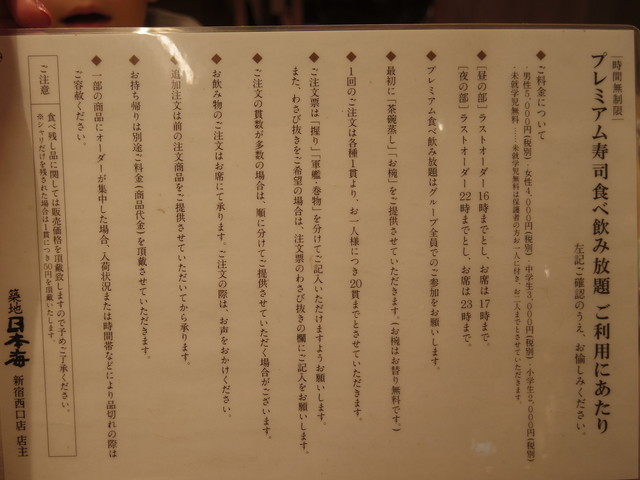 ［時間無制限］
プレミアム寿司食べ飲み放題 ご利用にあたり
左記ご確認のうえ、お愉しみください。
◆ ご料金について
・男性5,000円(税別)・女性4,000円(税別)・中学生3,000円(税別)・小学生2,000円(税別)
・未就学児無料……未就学児無料は保護者の方お一人に付き、お二人までとさせていただきます。
◆ ［昼の部］ラストオーダー16時までとし、お席は17時まで。
［夜の部］ラストオーダー22時までとし、お席は23時まで。
◆ プレミアム食べ飲み放題はグループ全員でのご参加をお願いします。
◆ 最初に「茶碗蒸し」「お椀」をご提供させていただきます。(お椀はお替り無料です。)
◆ 1回のご注文は各種1貫より、お一人様につき20貫までとさせていただきます。
◆ ご注文票は「握り」「軍艦・巻物」を分けてご記入いただけますようお願いします。
また、わさび抜きをご希望の場合は、注文票のわさび抜きの欄にご記入をお願いします。
◆ ご注文の貫数が多数の場合は、順に分けてご提供させていただく場合がございます。
◆ お飲み物のご注文はお席にて承ります。ご注文の際は、お声をおかけください。
◆ 追加注文は前の注文商品をご提供させていただいてから承ります。
◆ お持ち帰りは別途ご料金(商品代金)を頂戴させていただきます。
◆ 一部の商品にオーダーが集中した場合、入荷状況または時間帯などにより品切れの際は
ご容赦ください。
ご注意
食べ残し品に関しては販売価格を頂戴致しますので予めご了承ください。
※シャリだけを残された場合は1貫につき50円を頂戴いたします。
築地日本海 新宿西口店 店主